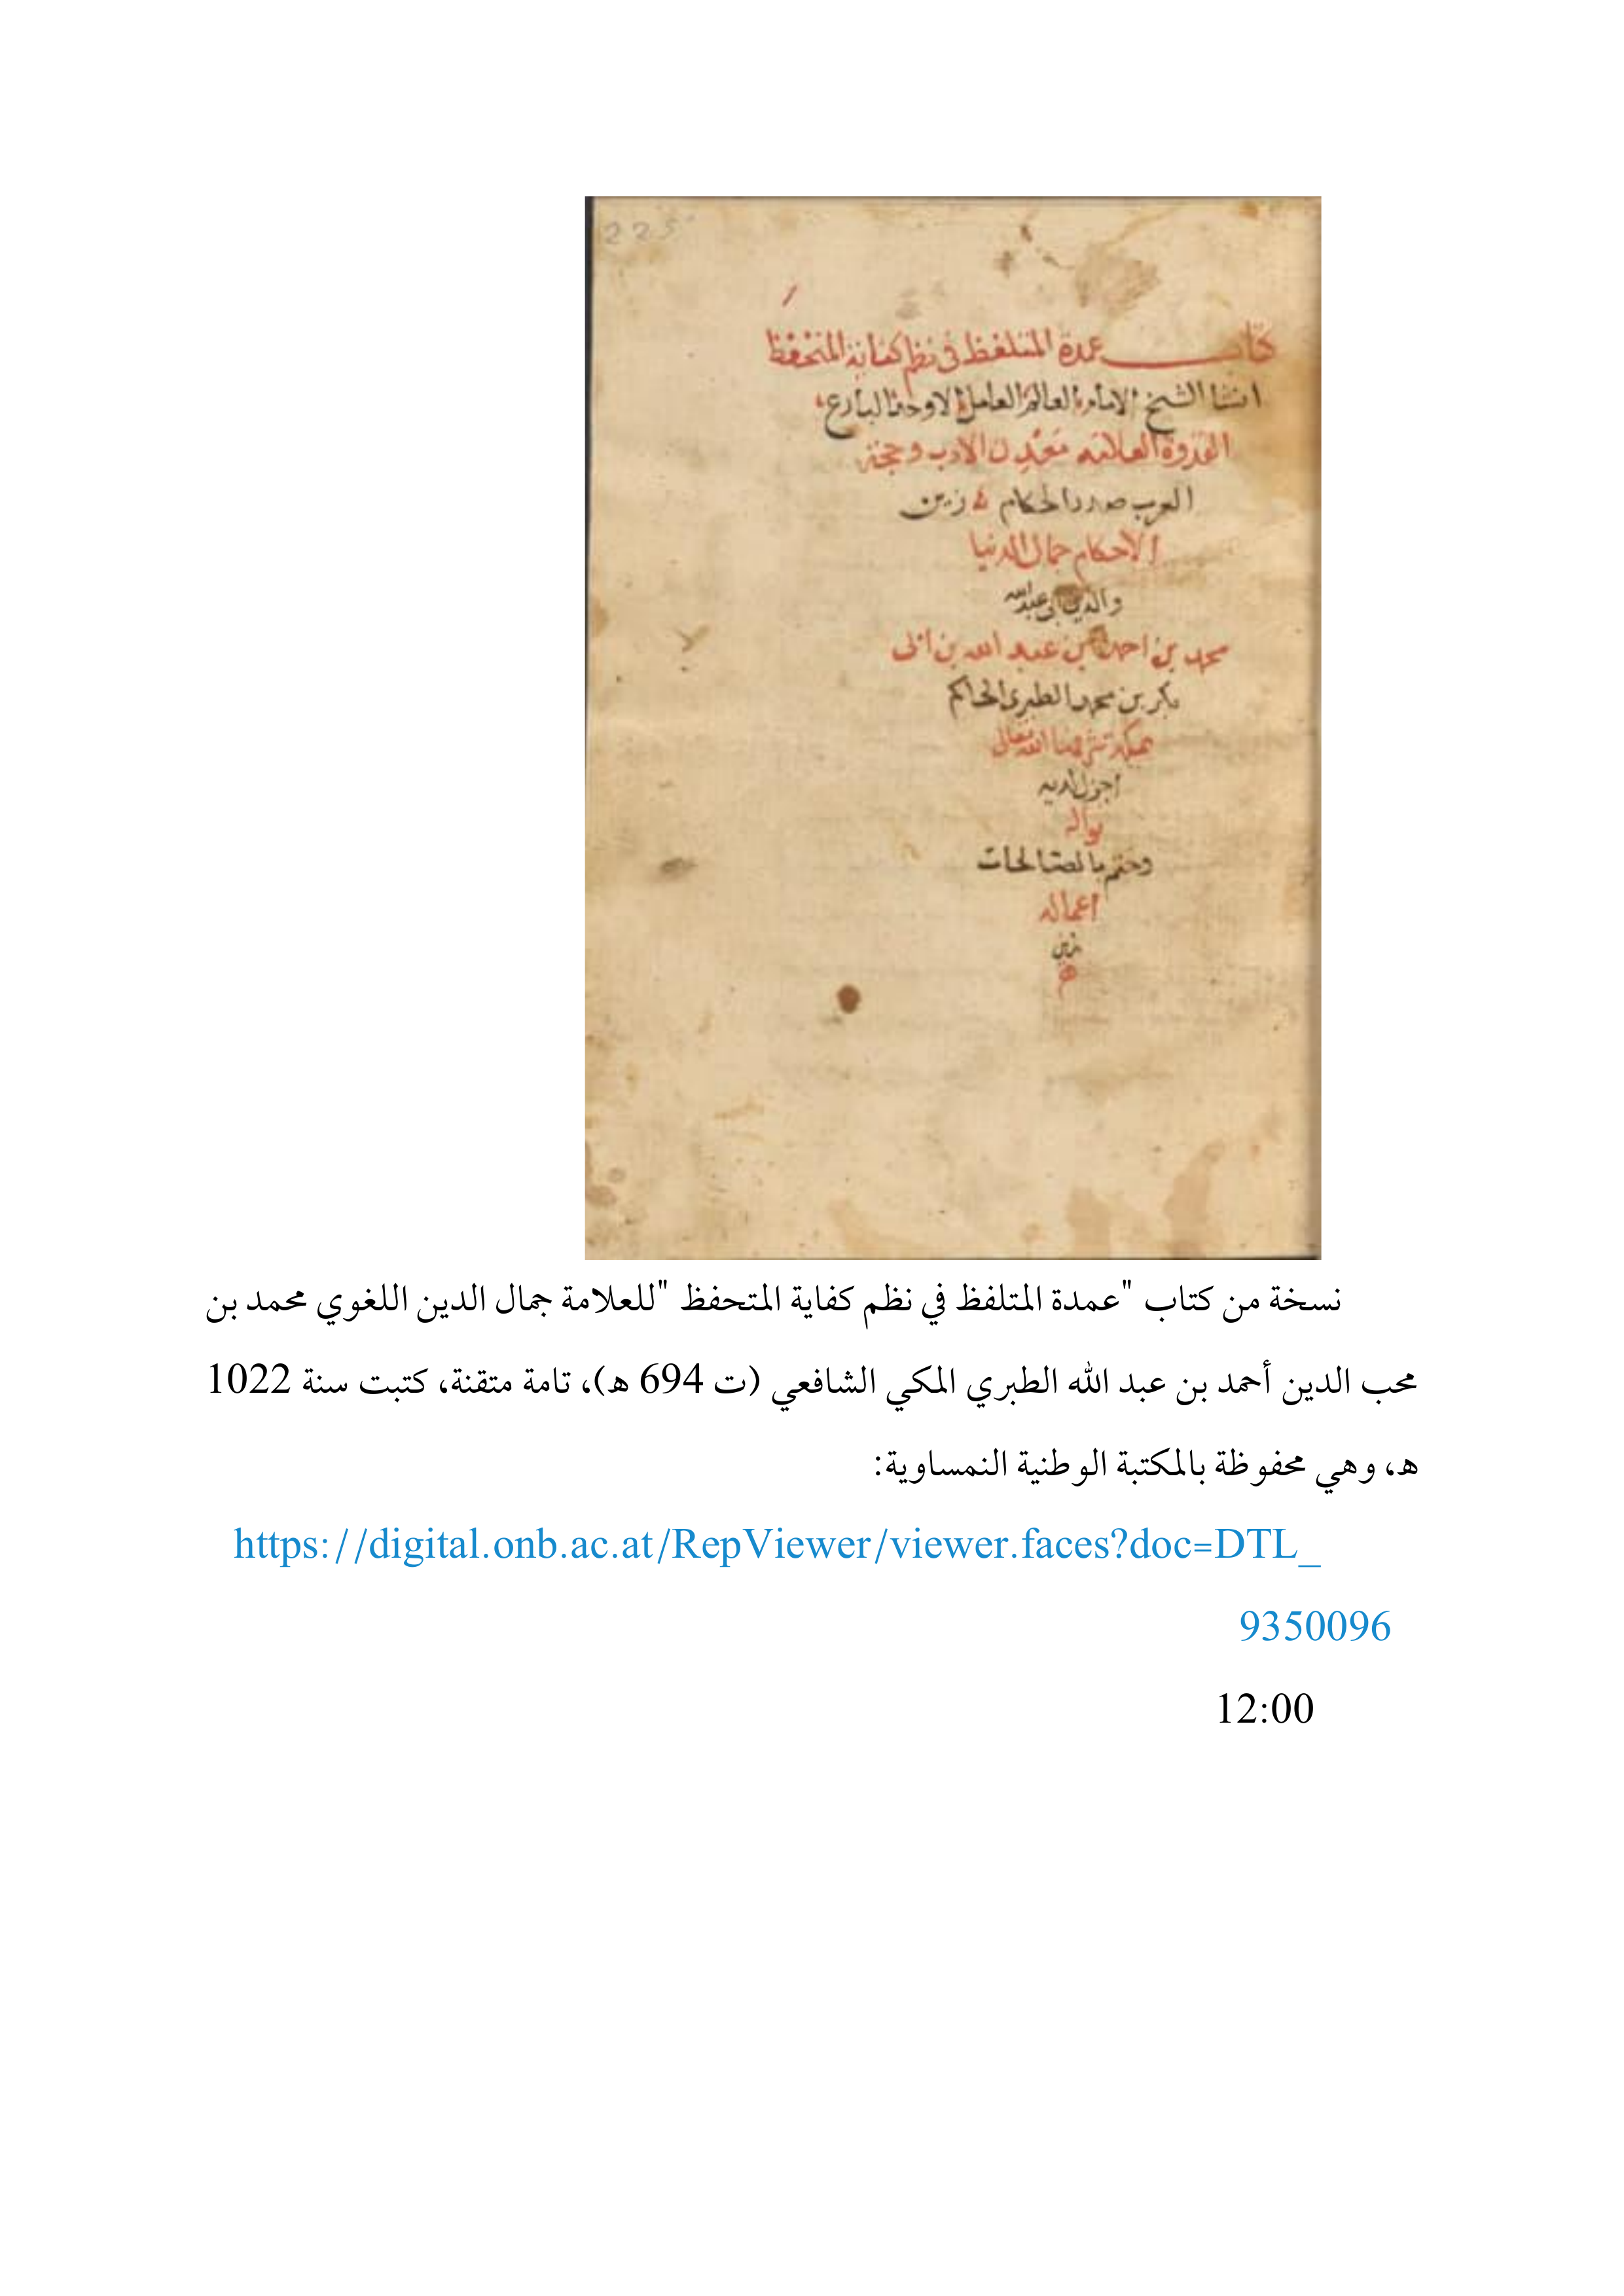 225
كتاب عمدة المتلفظ في نظم كفاية المتحفظ
انشا الشيخ الامام العالم العامل الاوحد البارع
القدوة العلامه معدن الادب وحجة
العرب صدر الحكام زين
الاحكام جمال الدنيا
والدين ابى عبد الله
محمد بن احمد بن عبد الله بن ابى
بكر بن محمد الطبرى الحاكم
بمكه شرفها الله تعالى
اجزل لديه
نواله
وختم بالصالحات
اعماله
نسخة من كتاب "عمدة المتلفظ في نظم كفاية المتحفظ "للعلامة جمال الدين اللغوي محمد بن
محب الدين أحمد بن عبد الله الطبري المكي الشافعي (ت 694 ه)، تامة متقنة، كتبت سنة 1022
ه، وهي محفوظة بالمكتبة الوطنية النمساوية:
https://digital.onb.ac.at/RepViewer/viewer.faces?doc=DTL_
9350096
12:00